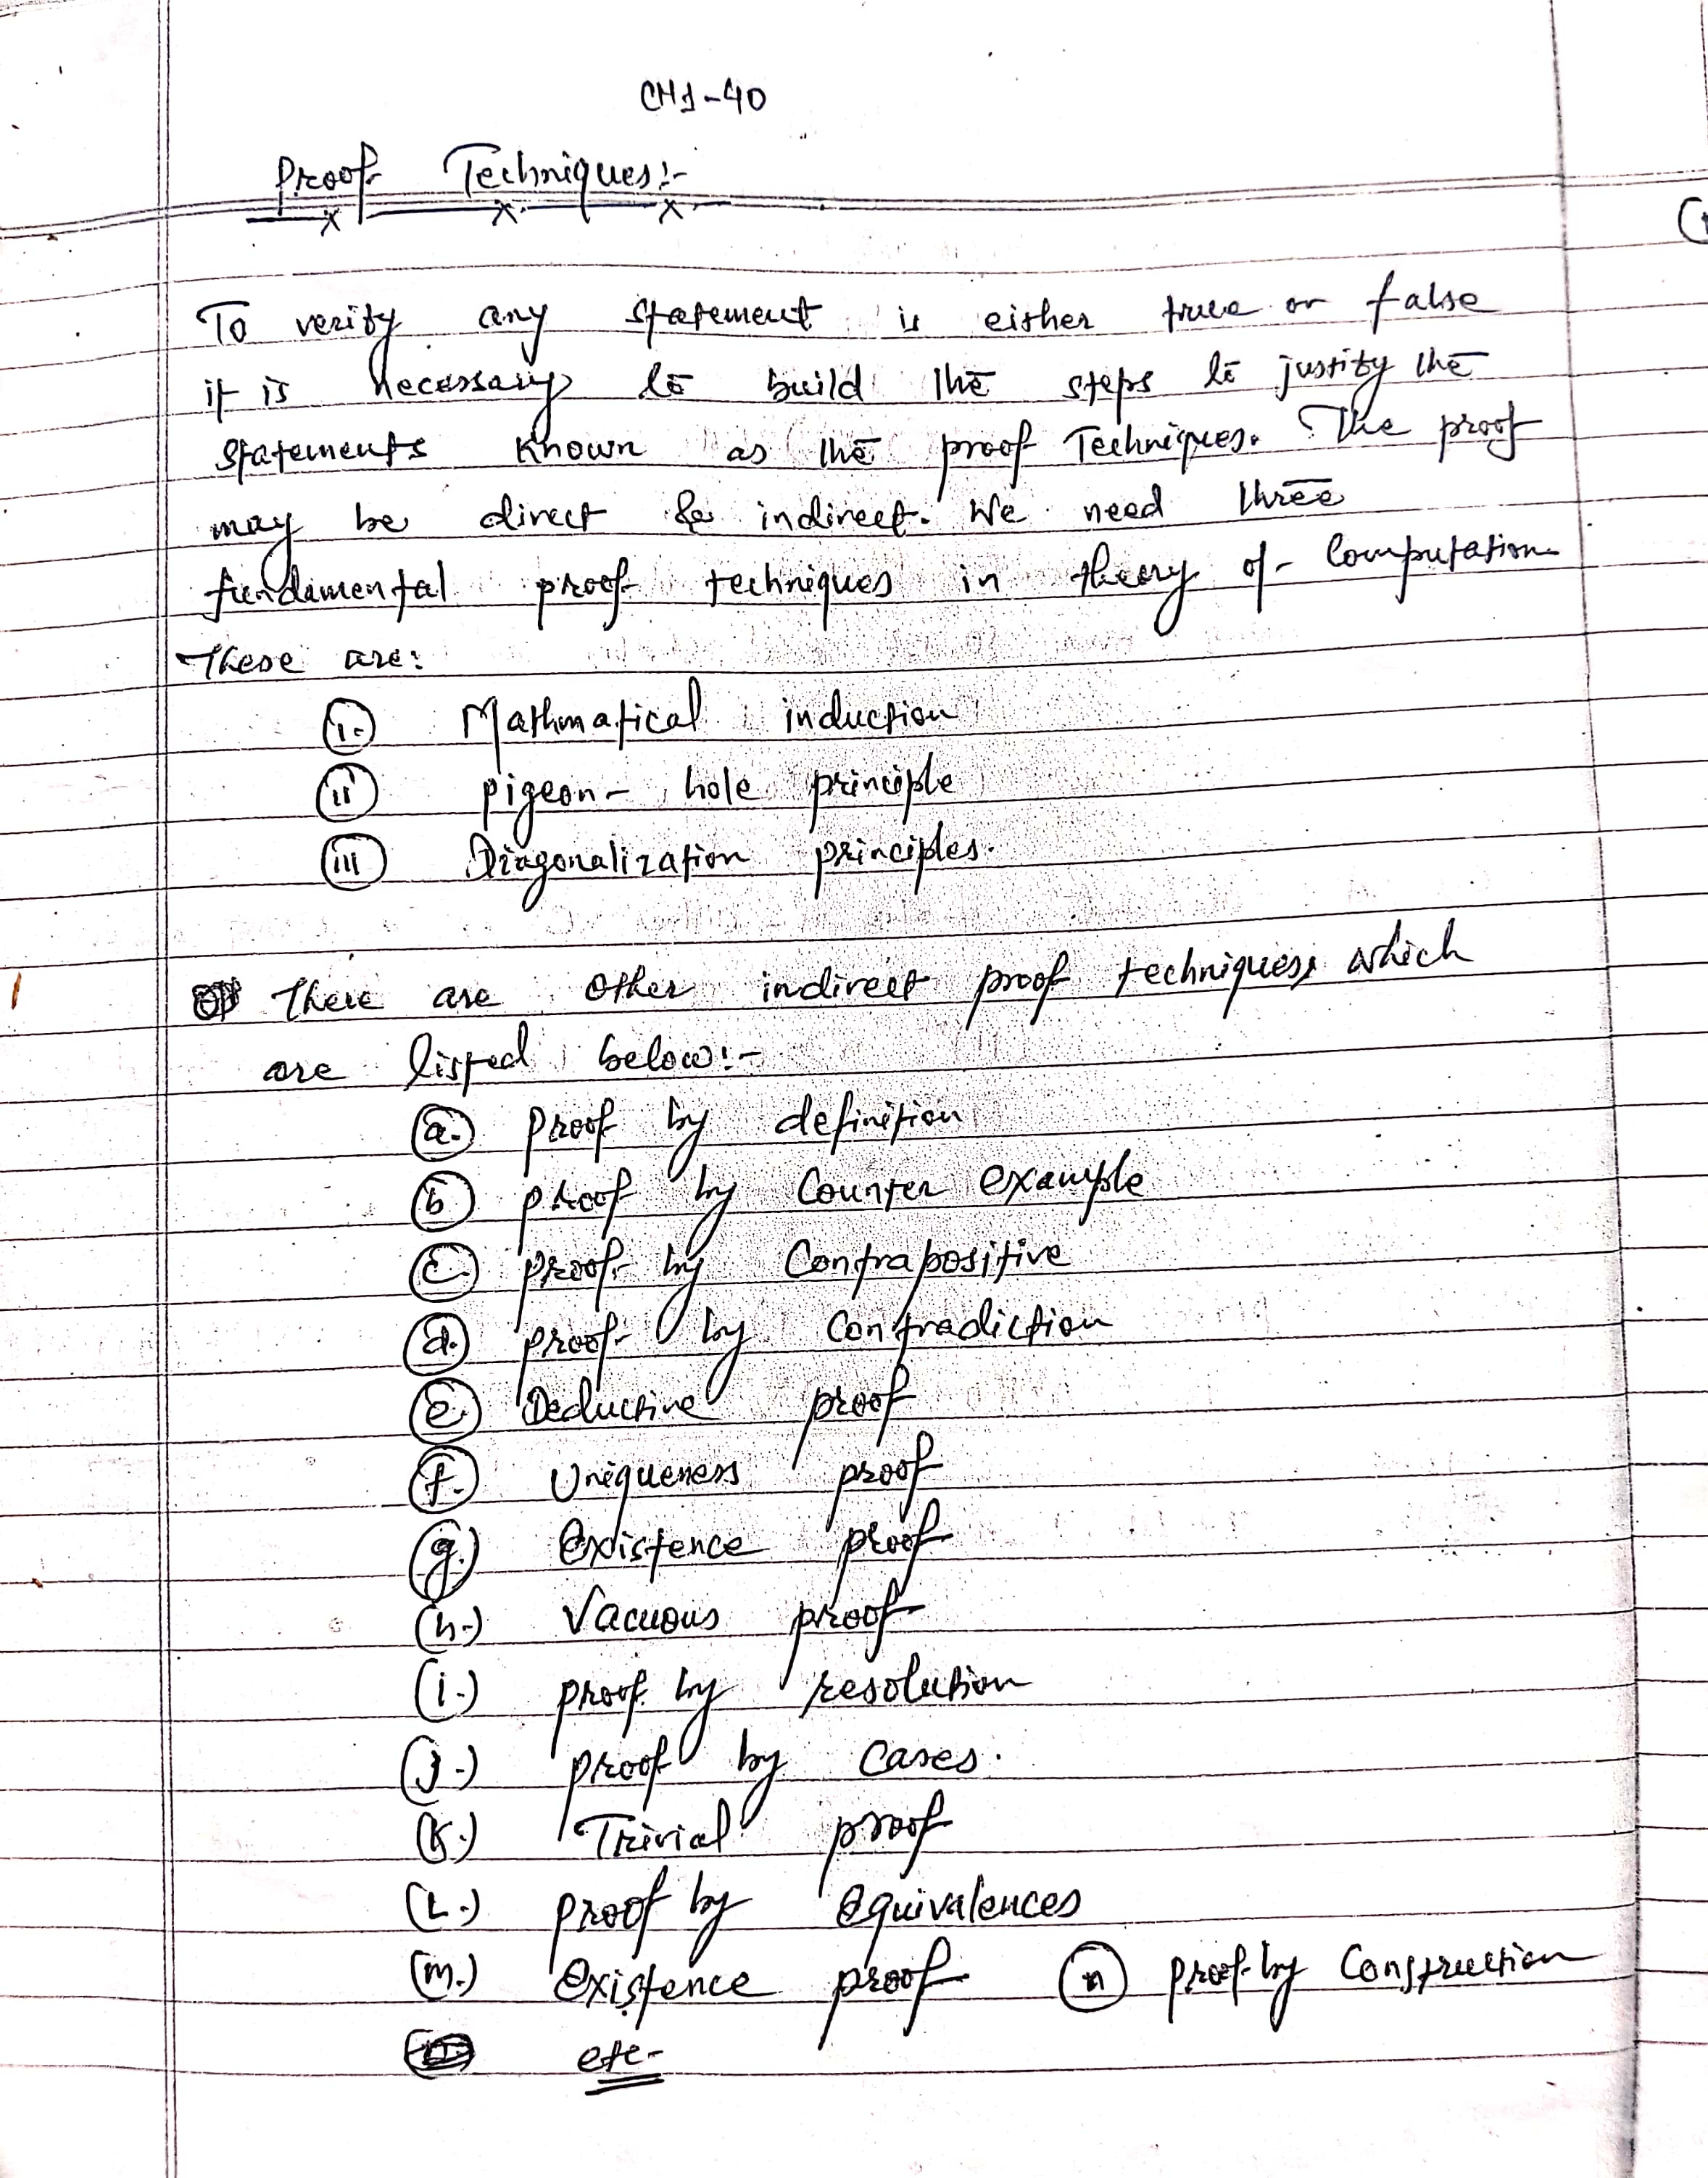 CH1-40
Proof Techniques:-
To verify any statement is either true or false
it is necessary to build the steps to justify the
statements known as the proof Techniques. The proof
may be direct & indirect. We need three
fundamental proof techniques in theory of Computation
These are:
(i.) Mathmatical induction
(ii) pigeon- hole principle
(iii) Diagonalization principles.
There are other indirect proof techniques which
are listed below:-
(a.) proof by definition
(b) proof by Counter example
(c.) proof by Contrapositive
(d.) proof by Contradiction
(e.) Deductive proof
(f.) Uniqueness proof
(g.) Existence proof
(h.) Vacuous proof
(i.) proof by resolution
(j.) proof by cases.
(k.) Trivial proof
(L.) proof by equivalences
(m.) Existence proof (n) proof by Construction
etc-